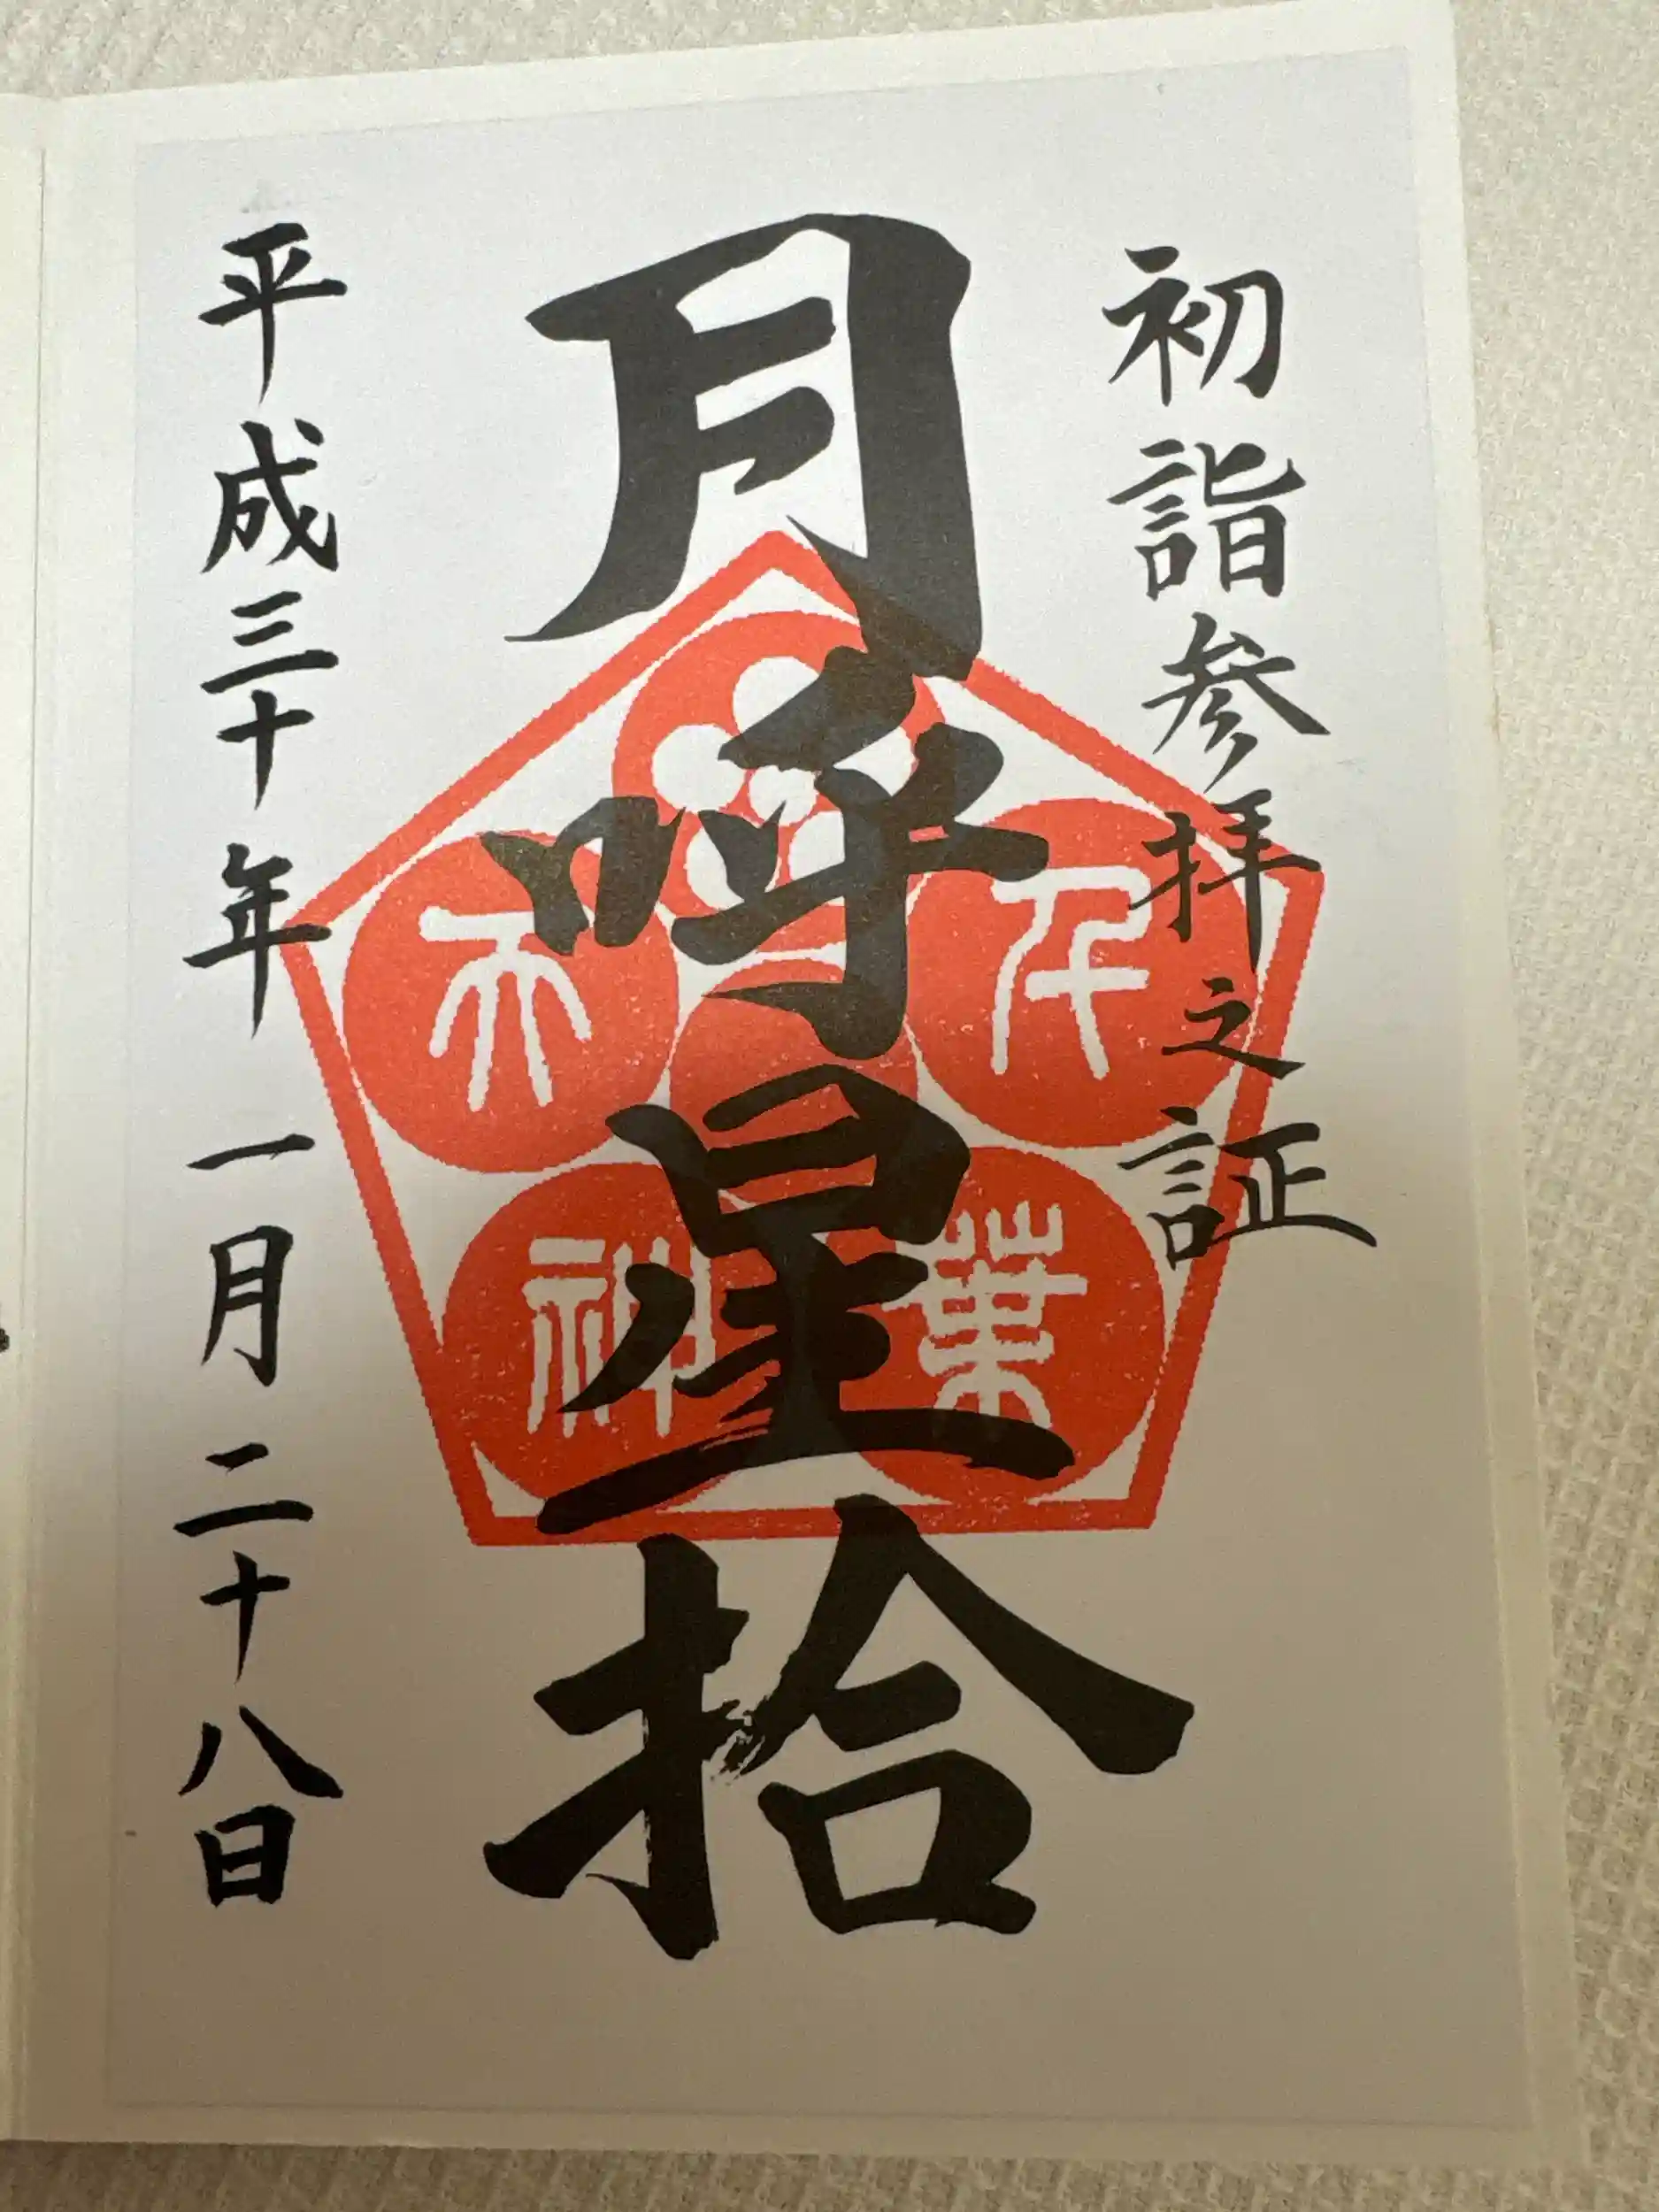 初詣参拝之証
月呼星拾
千葉
神
平成三十年一月二十八日